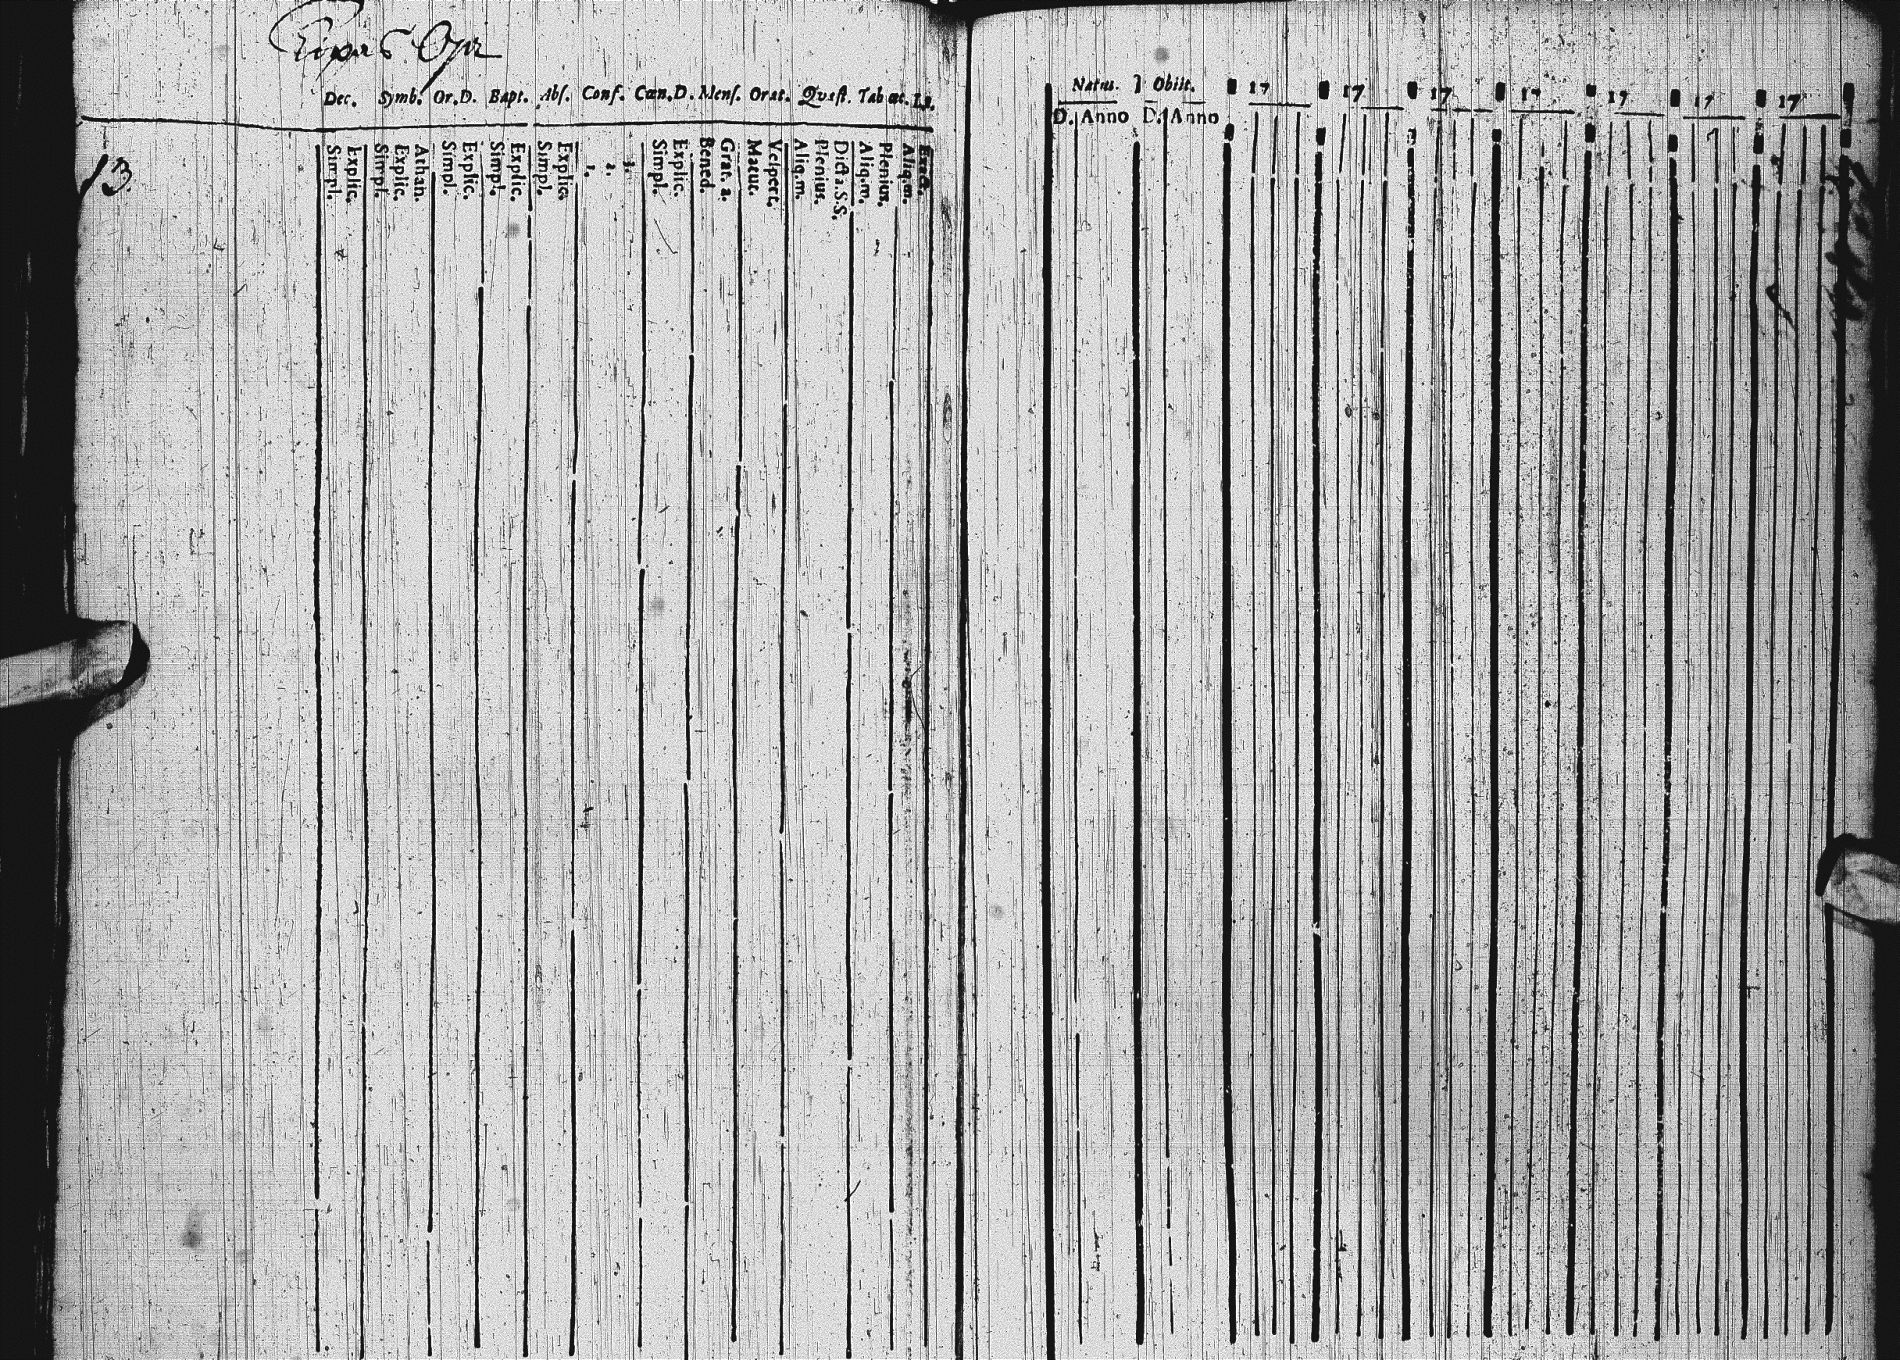 Dec. Symb. Or.D. Bapt. Abs. Conf. Cœn.D. Mens. Orat. Quæst. Tab œc.
13.
Simpl. Explic. Simpl. Explic. Athan. Simpl. Explic. Simpl. Explic. Simpl. Explic. 1. 2. 3. Simpl. Explic. Bened. Grat. a. Matut. Vespert. Aliq.m. Plenius. Dicta.S.S. Aliq.m. Plenius. Aliq.m.
Natus Obiit. 17 17 17 17 17 17 17
D. Anno D. Anno